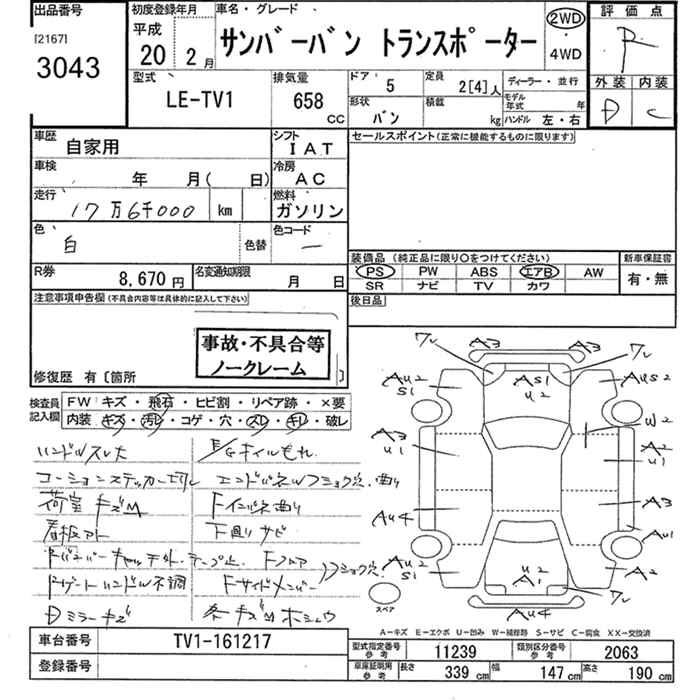 出品番号
[2167]
3043
初度登録年月
平成
20年 2月
車名・グレード
サンバーバン トランスポーター
2WD
・
4WD
評価点
R
外装 内装
D C
型式
LE-TV1
排気量
658 CC
ドア 5
定員 2[4]人
形状 バン
積載 kg
ディーラー・並行
モデル年式 年
ハンドル 左・右
車歴 自家用
シフト IAT
車検 年 月( 日)
冷房 AC
走行 17万6千000 km
燃料 ガソリン
色 白
色替
色コード —
セールスポイント(正常に機能するものに限ります)
装備品(純正品に限り○をつけてください)
PS PW ABS エアB AW
SR ナビ TV カワ
新車保証書
有・無
後日品
R券 8,670円
名変通知期限 月 日
注意事項申告欄(不具合内容等は具体的に記入して下さい)
事故・不具合等
ノークレーム
修復歴 有〔箇所 〕
検査員記入欄
FW キズ・飛石・ヒビ割・リペア跡・×要
内装・キズ・汚レ・コゲ・穴・スレ・キレ・破レ
ハンドルスレ大
E/Gオイルもれ
コーションステッカー切レ
エンドパネルワフショウ穴.曲り
荷室キズM
Fインパネ曲り
看板アト
下廻りサビ
テープ止
Fフロア
Rゲートハンドル不調
Fサイドメンバー
フショウ穴.
Dミラーキズ
各キズMホシュウ
A3
フレ
フレ
A3
AU2
S1
AS1
U2
AUS2
W2
A3
U1
A2
U1
AU4
A3
AU1
AU2
S1
U2
A1
A2
フレ
AU4
スペア
A-キズ E-エクボ U-凹み W-補修跡 S-サビ C-腐食 XX-交換済
車台番号 TV1-161217
登録番号
型式指定番号 参考 11239
類別区分番号 参考 2063
車庫証明用 参考 長さ 339cm 幅 147cm 高さ 190cm